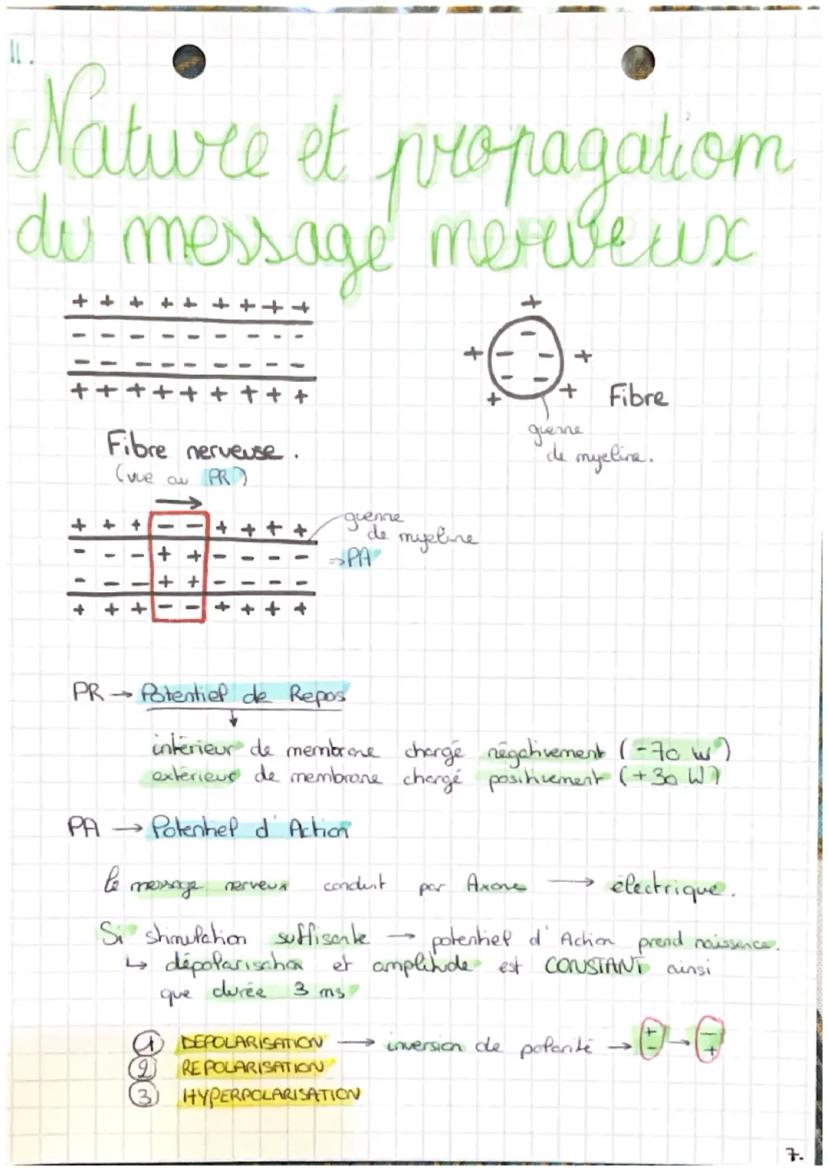 II.
Nature et propagation
du message nerveux
+ + + + + + + + +
- - - - - - - - -
- - - - - - - -
+ + + + + + + + +
Fibre nerveuse.
(vue au PR)
+
-
+ - - +
- -
+ + Fibre
guenne
de myeline.
→
+ + + - - + + + + +
- - - + + - - - -
- - - + + - - - -
+ + + - - + + + +
guenne
de myeline
⇒ PA
PR → Potentiel de Repos
↓
intérieur de membrane chargé négativement (-70 W)
extérieur de membrane chargé positivement (+30 W)
PA → Potentiel d'Action
le message nerveux conduit par Axone → électrique.
Si stimulation suffisante → potentiel d'Action prend naissance.
↳ dépolarisation et amplitude est CONSTANT ainsi
que durée 3 ms
1 DEPOLARISATION → inversion de polarité → + - → - +
2 REPOLARISATION
3 HYPERPOLARISATION
7.